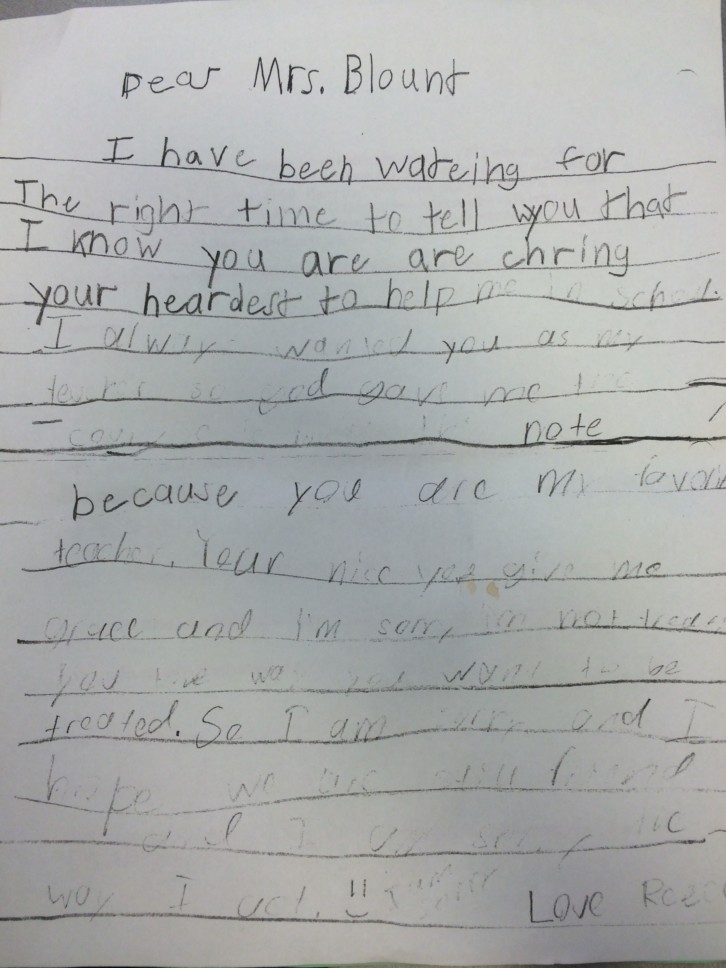 Dear Mrs. Blount
I have been wateing for
The right time to tell wyou that
I know you are are chring
your heardest to help me in school.
I always wanted you as my
so god gave me the
note
because you are my favori
teacher. Your nice you give me
grace and I'm sorry im not
you the way you want to be
treated. So I am sorry and I
hope we are still friend
and I am sorry the
way I act. I'm sorry Love